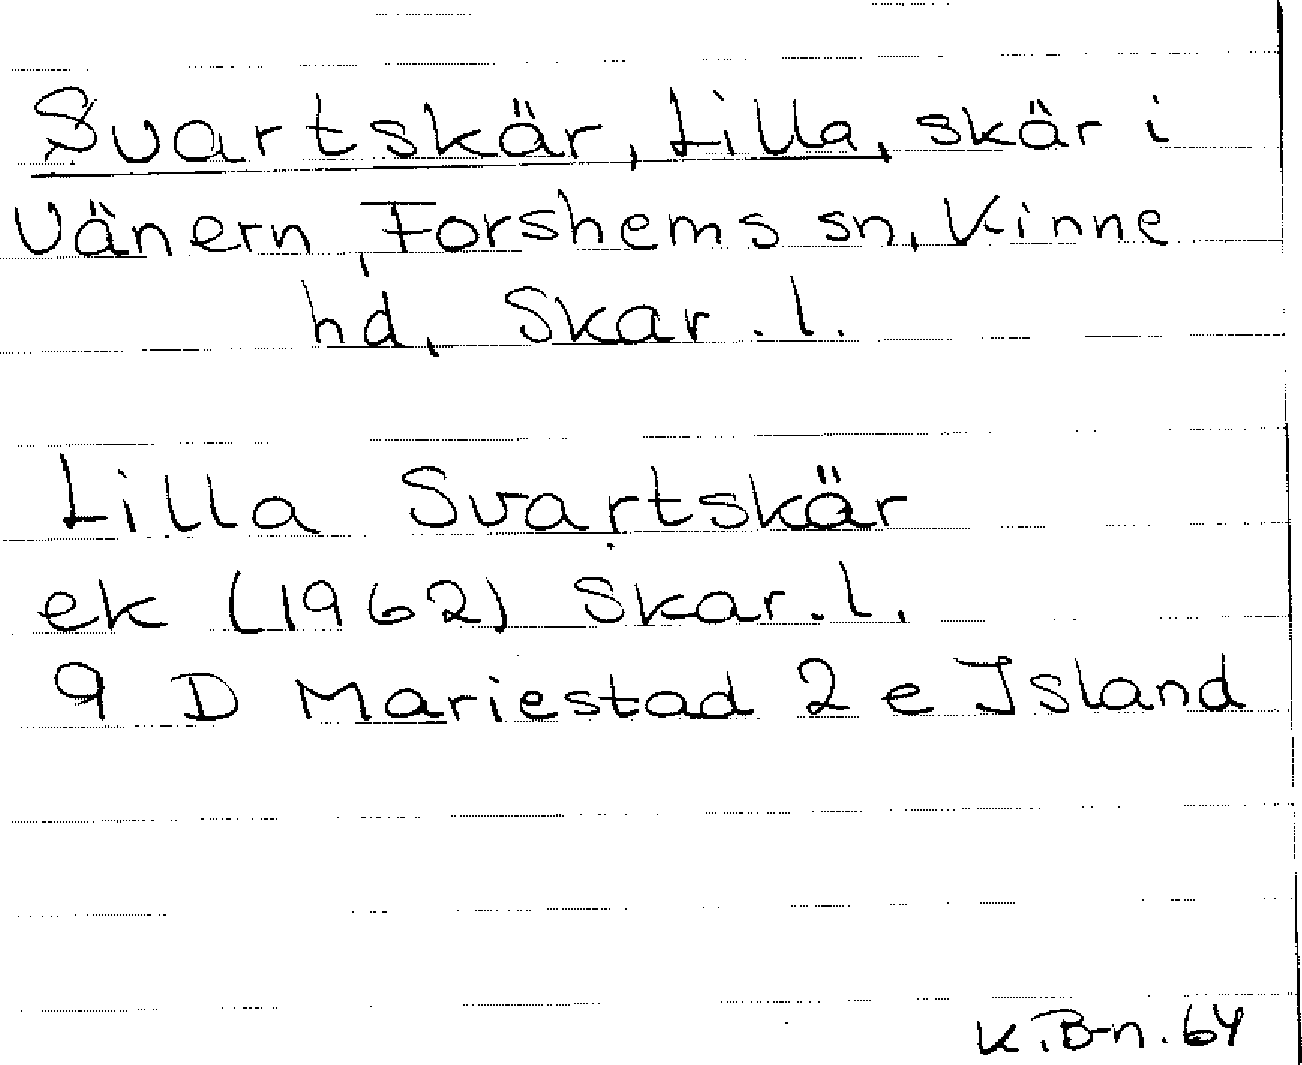 Svartskär, Lilla, skär i
Vänern, Forshems sn, Kinne
hd, Skar. l.
Lilla Svartskär
ek (1962) Skar. l.
9 D Mariestad 2 e Island
K. B-n. 64